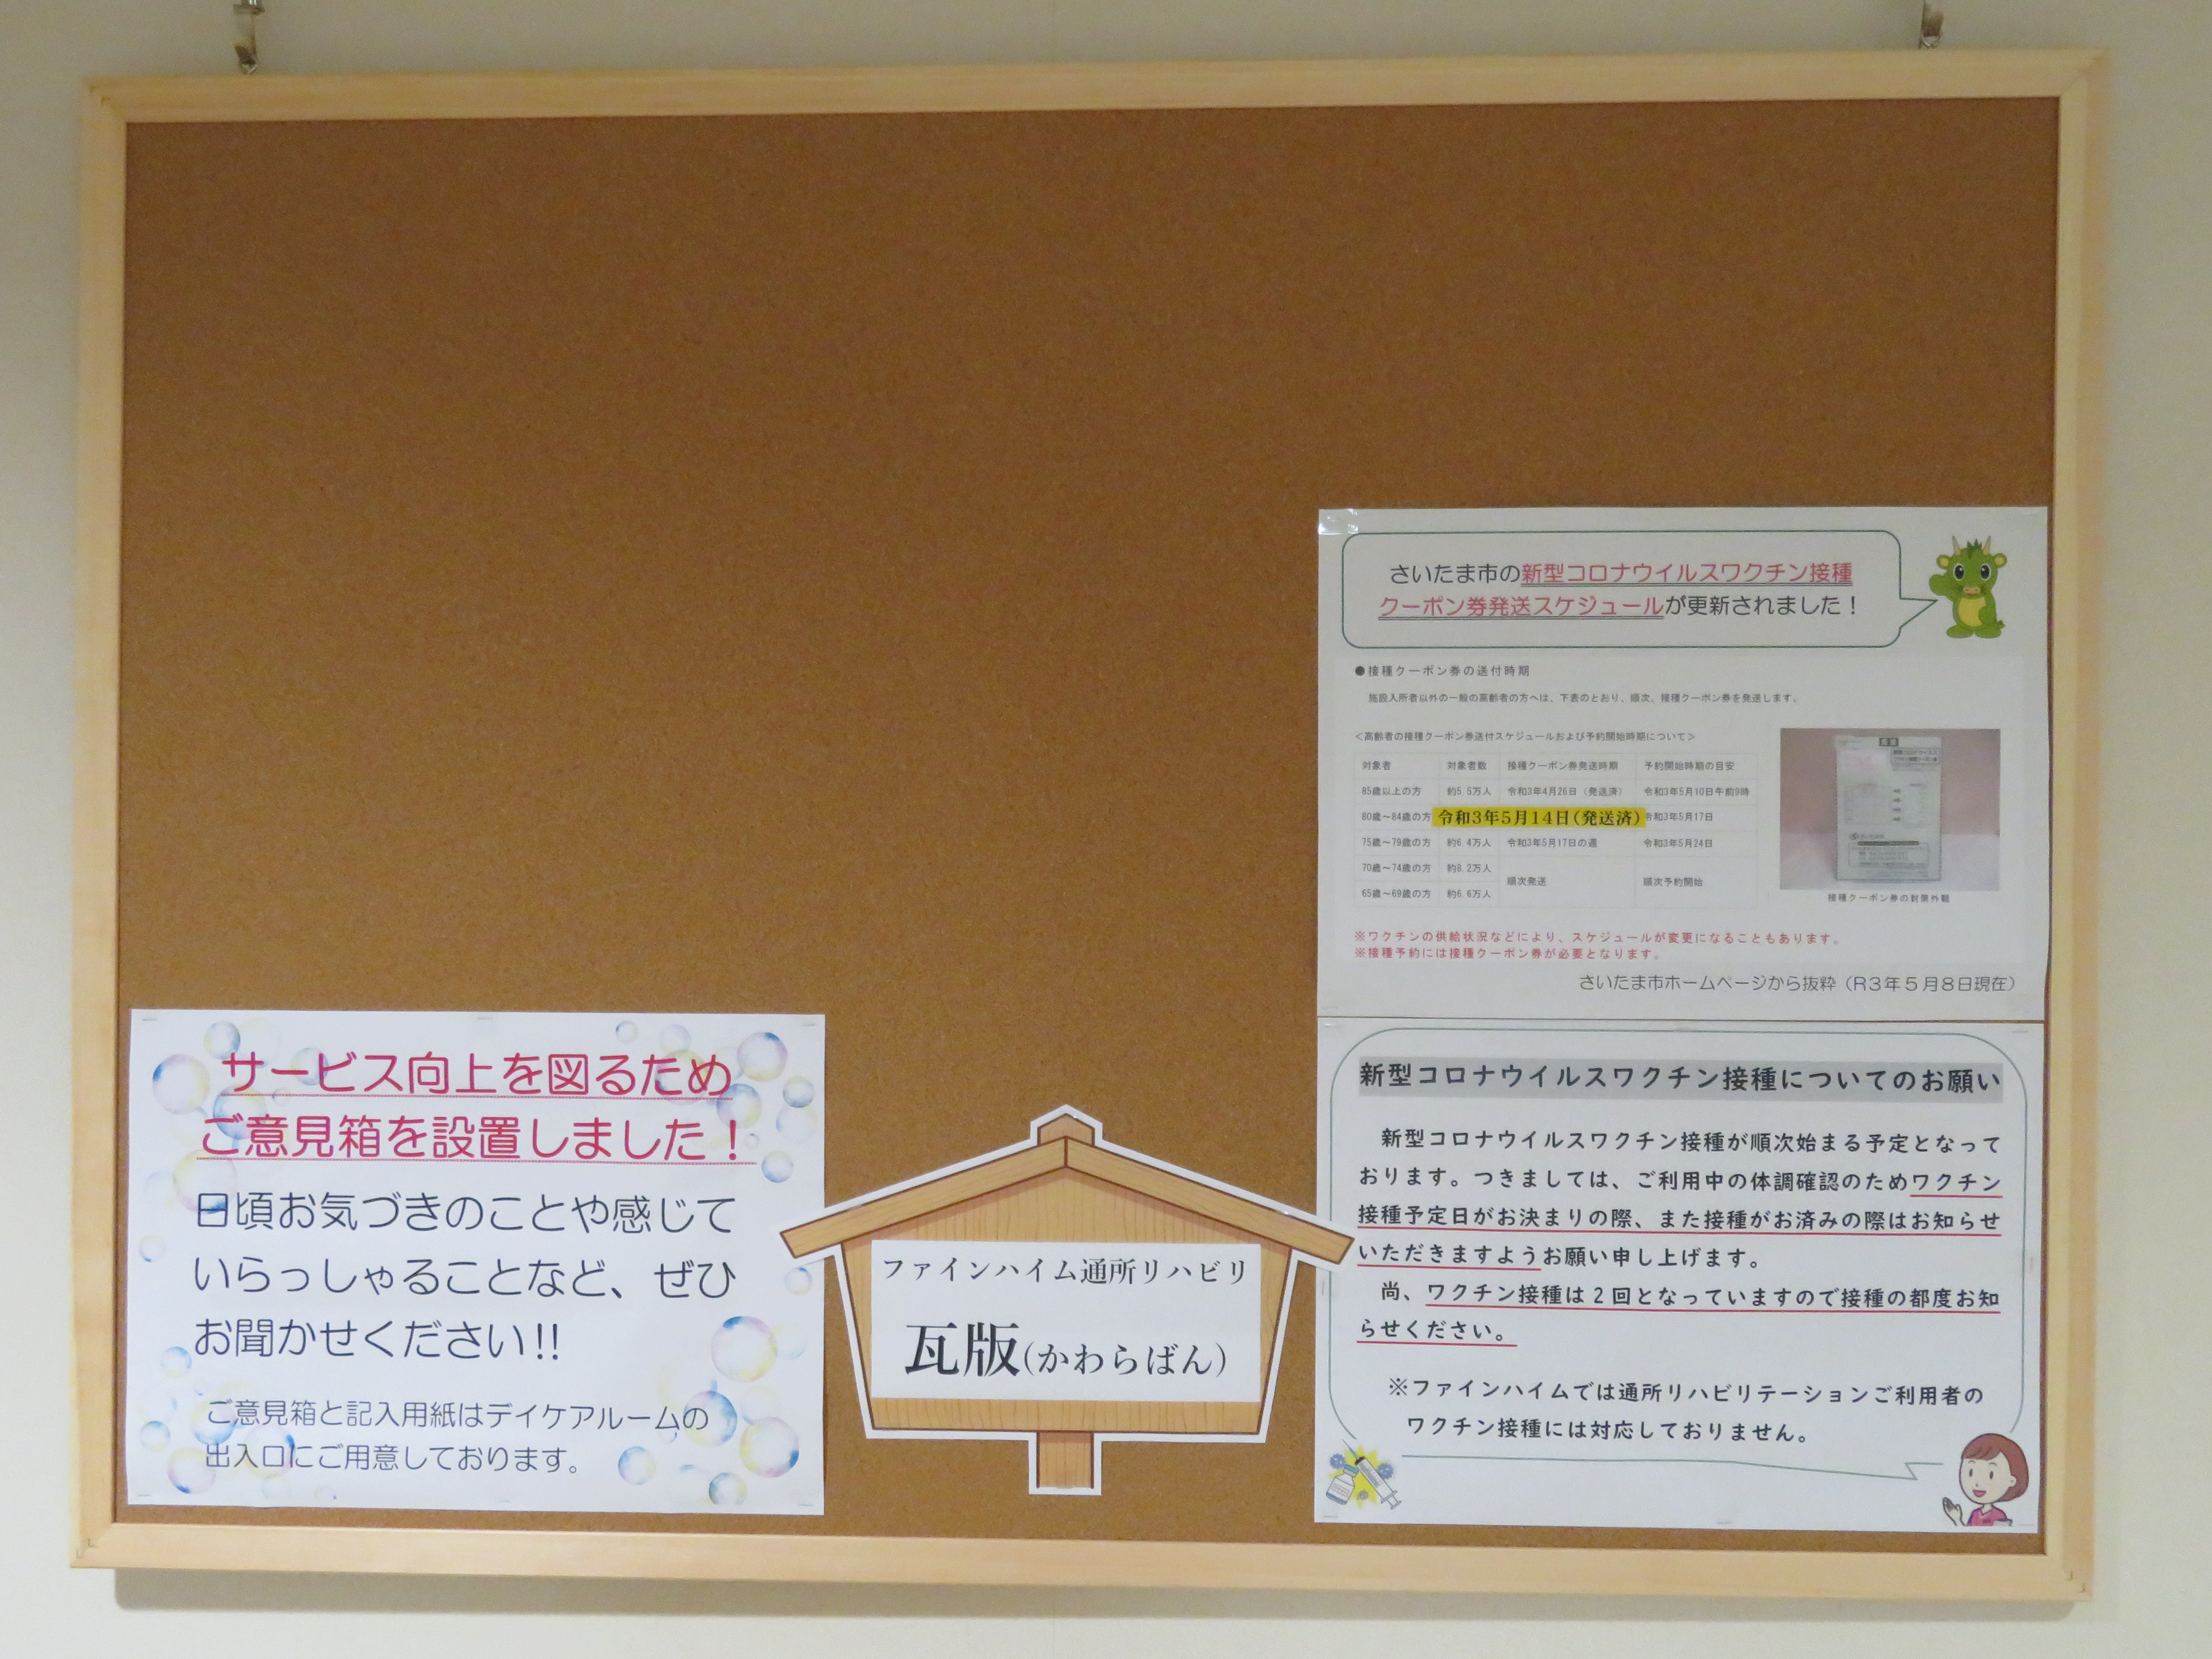 さいたま市の新型コロナウイルスワクチン接種
クーポン券発送スケジュールが更新されました！
●接種クーポン券の送付時期
施設入所者以外の一般の高齢者の方へは、下表のとおり、順次、接種クーポン券を発送します。
＜高齢者の接種クーポン券送付スケジュールおよび予約開始時期について＞
対象者 対象者数 接種クーポン券発送時期 予約開始時期の目安
85歳以上の方 約5.5万人 令和3年4月26日（発送済） 令和3年5月10日午前9時
80歳～84歳の方 令和3年5月14日(発送済) 令和3年5月17日
75歳～79歳の方 約6.4万人 令和3年5月17日の週 令和3年5月24日
70歳～74歳の方 約8.2万人
順次発送 順次予約開始
65歳～69歳の方 約6.6万人
接種クーポン券の封筒外観
※ワクチンの供給状況などにより、スケジュールが変更になることもあります。
※接種予約には接種クーポン券が必要となります。
さいたま市ホームページから抜粋（R３年５月８日現在）
サービス向上を図るため
ご意見箱を設置しました！
日頃お気づきのことや感じて
いらっしゃることなど、ぜひ
お聞かせください!!
ご意見箱と記入用紙はデイケアルームの
出入口にご用意しております。
ファインハイム通所リハビリ
瓦版(かわらばん)
新型コロナウイルスワクチン接種についてのお願い
新型コロナウイルスワクチン接種が順次始まる予定となって
おります。つきましては、ご利用中の体調確認のためワクチン
接種予定日がお決まりの際、また接種がお済みの際はお知らせ
いただきますようお願い申し上げます。
尚、ワクチン接種は２回となっていますので接種の都度お知
らせください。
※ファインハイムでは通所リハビリテーションご利用者の
ワクチン接種には対応しておりません。